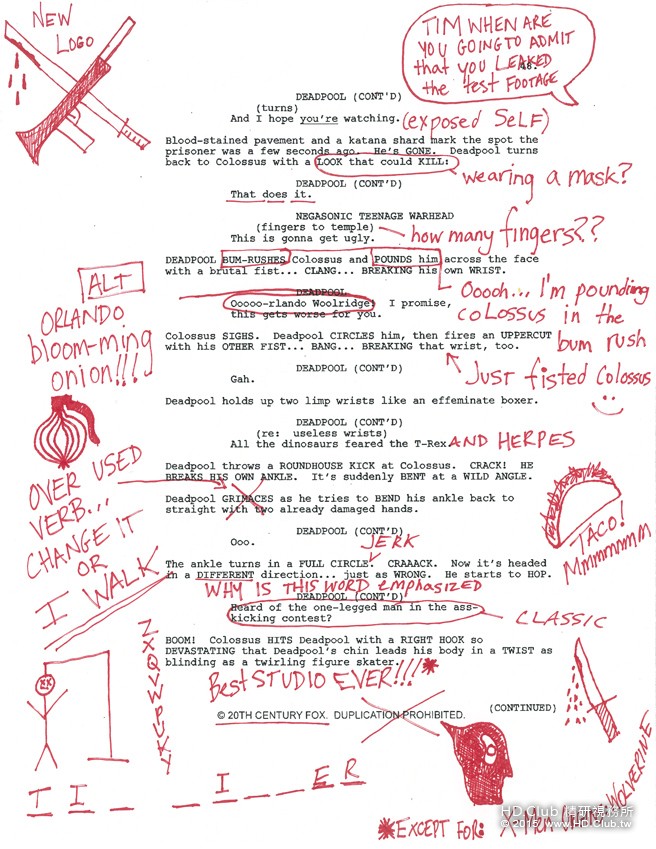 NEW
LOGO
TIM WHEN ARE
YOU GOING TO ADMIT
that you LEAKED
the test FOOTAGE
48.
DEADPOOL (CONT'D)
(turns)
And I hope you're watching.
(exposed SELF)
Blood-stained pavement and a katana shard mark the spot the
prisoner was a few seconds ago. He's GONE. Deadpool turns
back to Colossus with a LOOK that could KILL:
wearing a mask?
DEADPOOL (CONT'D)
That does it.
NEGASONIC TEENAGE WARHEAD
(fingers to temple)
This is gonna get ugly.
how many fingers??
DEADPOOL BUM-RUSHES Colossus and POUNDS him across the face
with a brutal fist... CLANG... BREAKING his own WRIST.
ALT
ORLANDO
bloom-ming
onion!!!
DEADPOOL
Ooooo-rlando Woolridge! I promise,
this gets worse for you.
Ooooh... I'm pounding
coLossus in the
bum rush
Colossus SIGHS. Deadpool CIRCLES him, then fires an UPPERCUT
with his OTHER FIST... BANG... BREAKING that wrist, too.
Just fisted Colossus
DEADPOOL (CONT'D)
Gah.
Deadpool holds up two limp wrists like an effeminate boxer.
DEADPOOL (CONT'D)
(re: useless wrists)
All the dinosaurs feared the T-Rex
AND HERPES
Deadpool throws a ROUNDHOUSE KICK at Colossus. CRACK! HE
BREAKS HIS OWN ANKLE. It's suddenly BENT at a WILD ANGLE.
OVER USED
VERB...
CHANGE IT
OR
I WALK
Deadpool GRIMACES as he tries to BEND his ankle back to
straight with two already damaged hands.
TACO!
Mmmmmmm
DEADPOOL (CONT'D)
Ooo.
JERK
The ankle turns in a FULL CIRCLE. CRAAACK. Now it's headed
in a DIFFERENT direction... just as WRONG. He starts to HOP.
WHY IS THIS WORD emphasized
DEADPOOL (CONT'D)
Heard of the one-legged man in the ass-
kicking contest?
CLASSIC
BOOM! Colossus HITS Deadpool with a RIGHT HOOK so
DEVASTATING that Deadpool's chin leads his body in a TWIST as
blinding as a twirling figure skater.
Best STUDIO EVER!!!*
(CONTINUED)
© 20TH CENTURY FOX. DUPLICATION PROHIBITED.
T I _ _ _ I _ _ E R
*EXCEPT FOR: X-Men
WOLVERINE
HD.Club 精研視務所
© 2015 www.HD.Club.tw